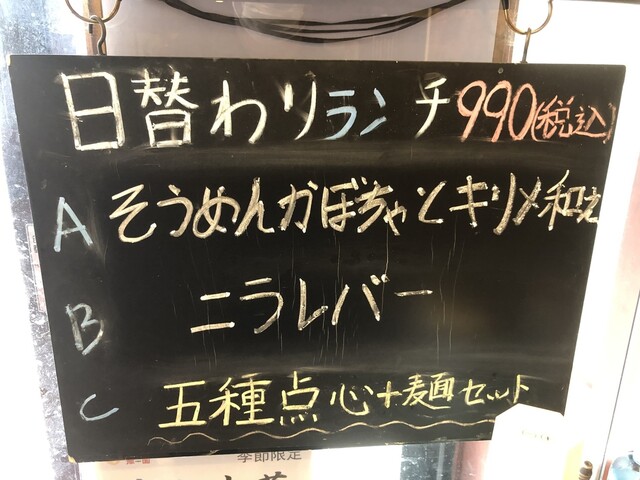 日替わりランチ990(税込)
A そうめんかぼちゃとキリメ和え
B ニラレバー
C 五種点心+麺セット
季節限定